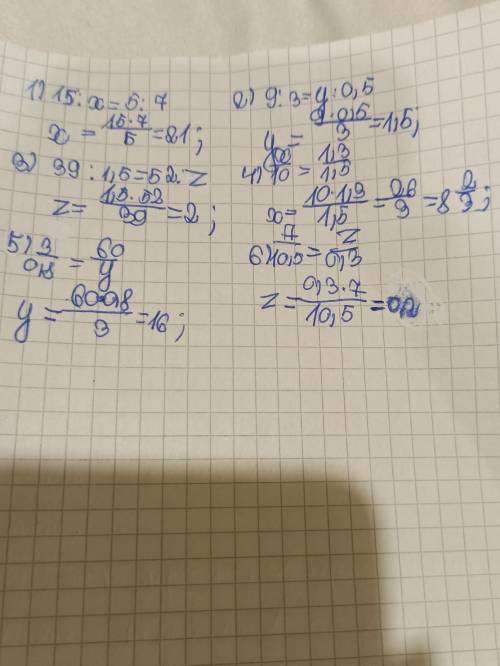 1) 15 : x = 5 : 7
x = 15·7/5 = 21;
2) 9 : 3 = y : 0,5
y = 9·0,5/3 = 1,5;
3) 39 : 1,5 = 52 : z
z = 1,5·52/39 = 2;
4) x/10 = 1,3/1,5
x = 10·1,3/1,5 = 26/3 = 8 2/3;
5) 3/0,8 = 60/y
y = 60·0,8/3 = 16;
6) 7/10,5 = z/0,3
z = 0,3·7/10,5 = 0,2